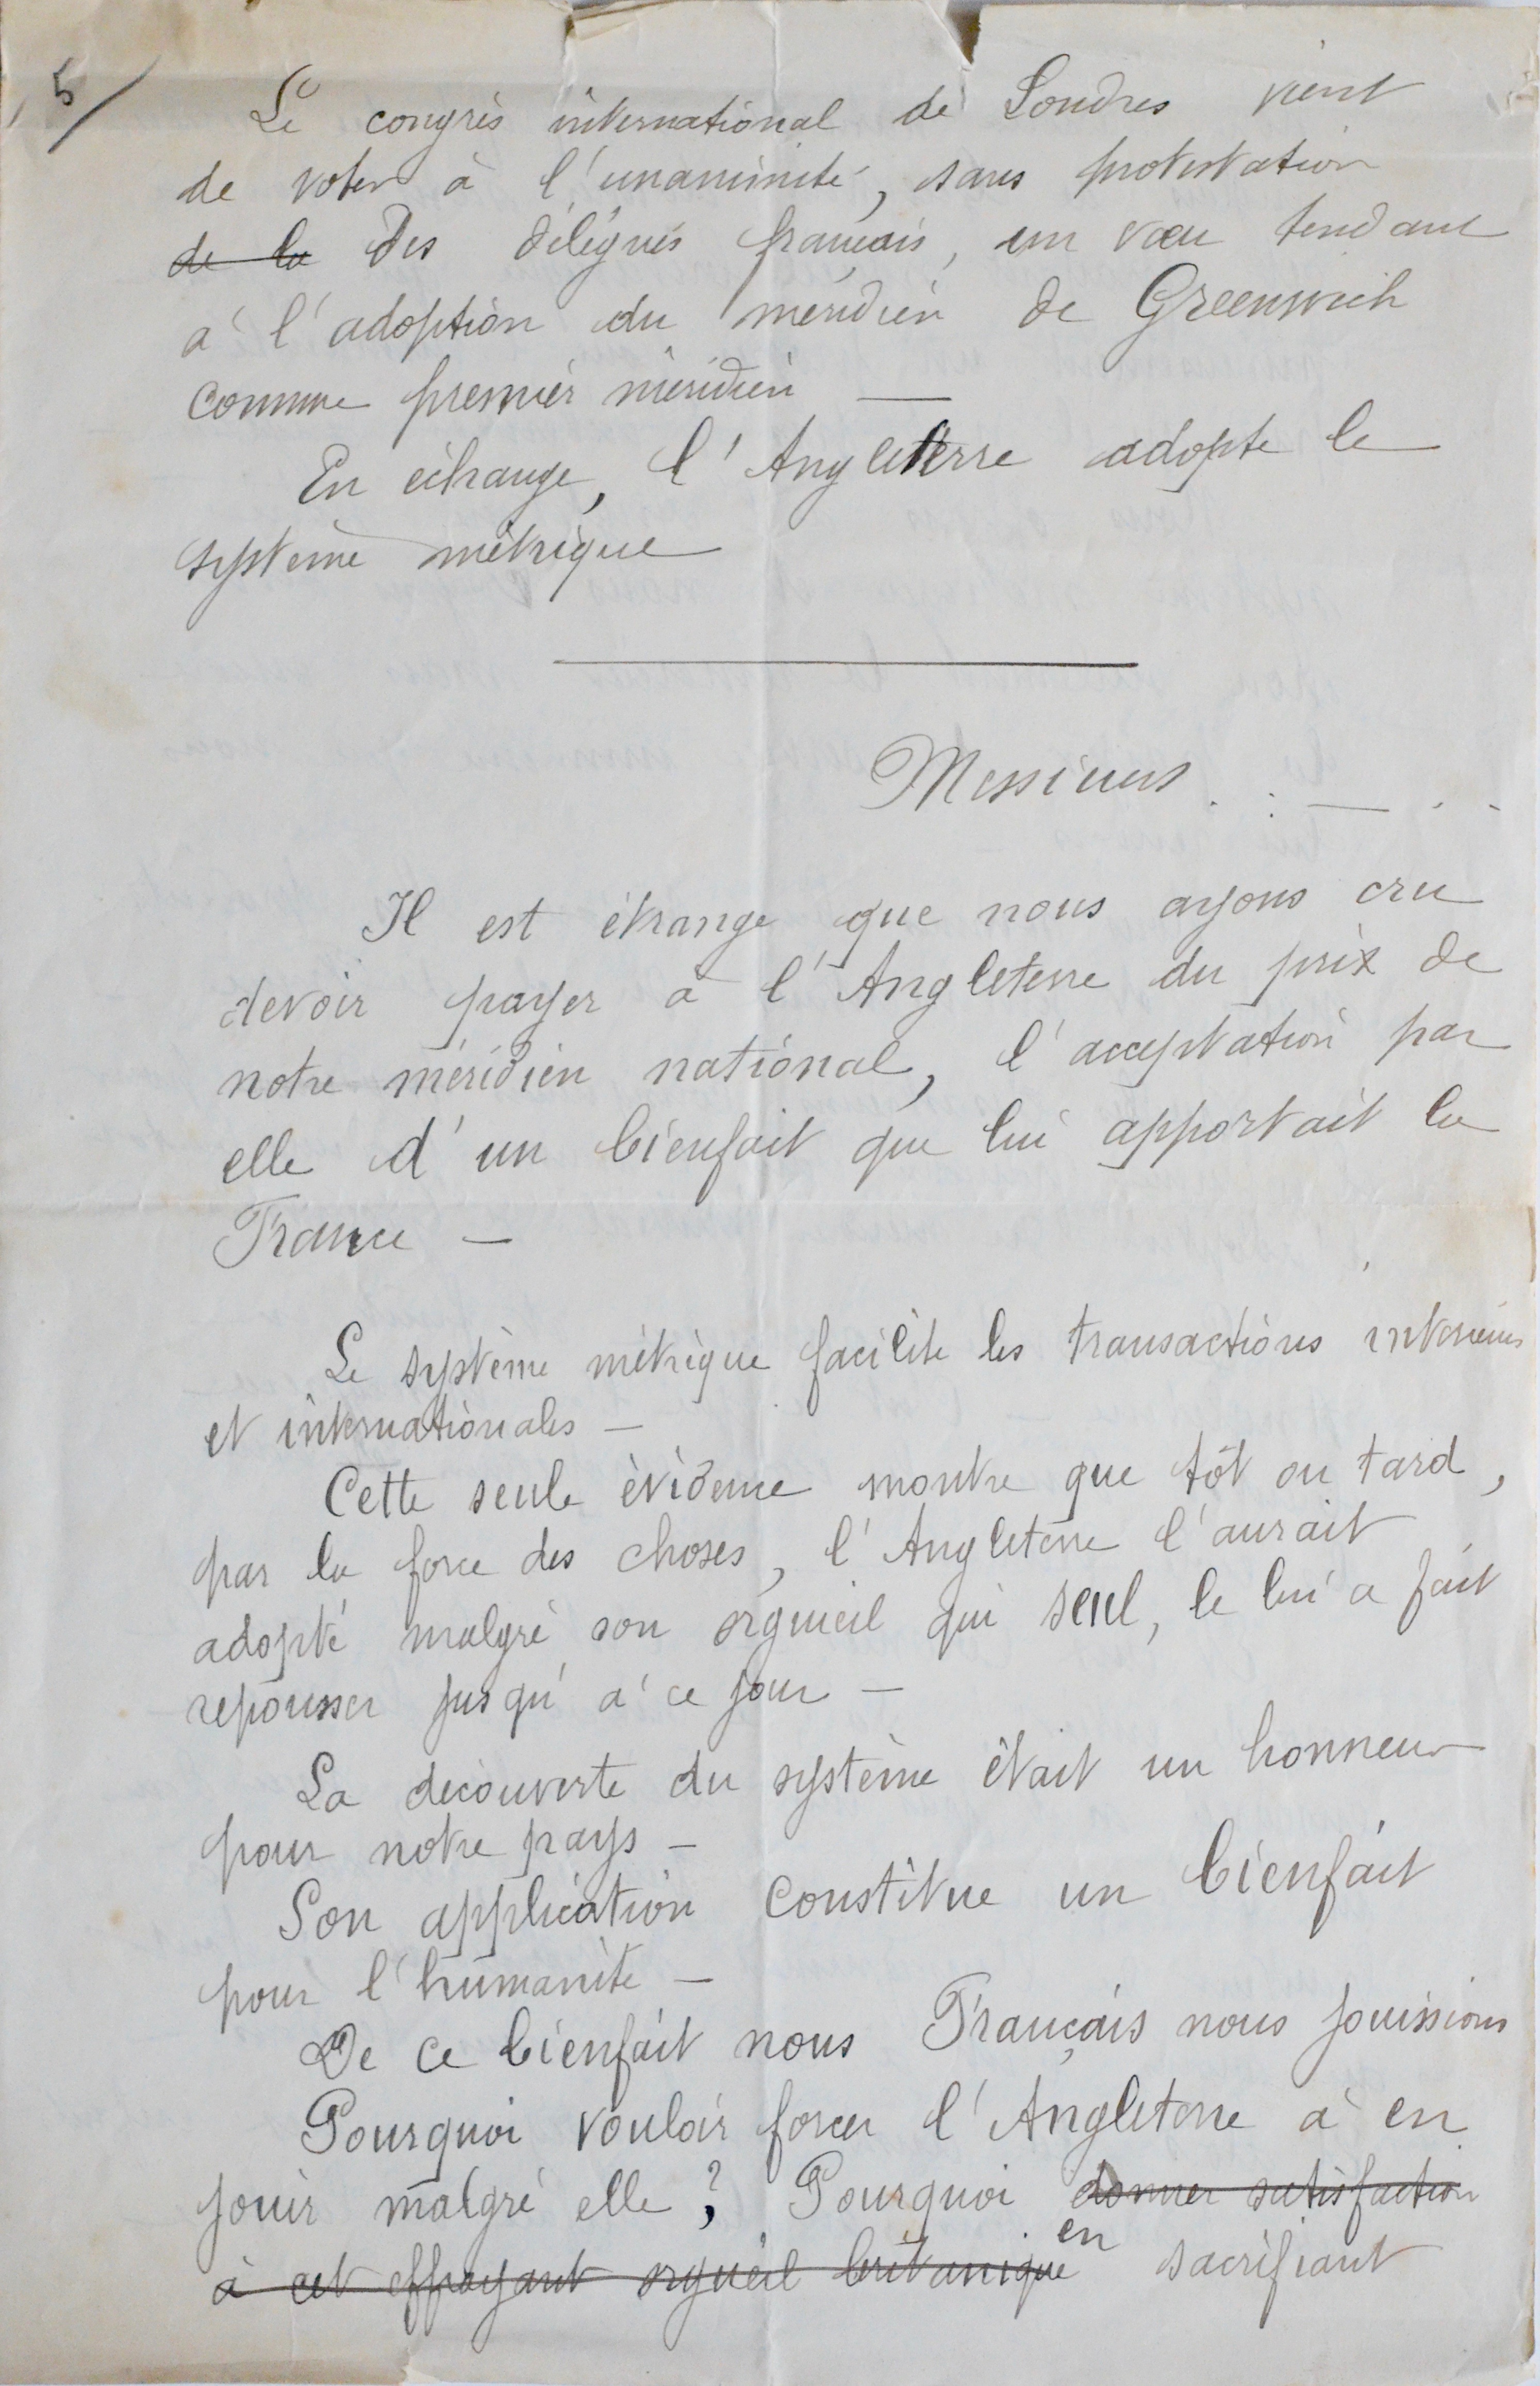 5/
Le congrès international de Londres vient
de voter à l'unanimité, sans protestation
de la des délégués français, un vœu tendant
à l'adoption du méridien de Greenwich
comme premier méridien —
En échange, l'Angleterre adopte le
système métrique
Messieurs . : — . . -
Il est étrange que nous ayons cru
devoir payer à l'Angleterre du prix de
notre méridien national, l'acceptation par
elle d'un bienfait que lui apportait la
France —
Le système métrique facilite les transactions interieures
et internationales —
Cette seule évidence montre que tôt ou tard,
par la force des choses, l'Angleterre l'aurait
adopté malgré son orgueil qui seul, le lui a fait
repousser jusqu'à ce jour —
La découverte du système était un honneur
pour notre pays —
Son application constitue un bienfait
pour l'humanité —
De ce bienfait nous Français nous jouissions
Pourquoi vouloir forcer l'Angleterre à en
jouir malgré elle ? Pourquoi donner satisfaction
à cet effrayant orgueil britanique en sacrifiant